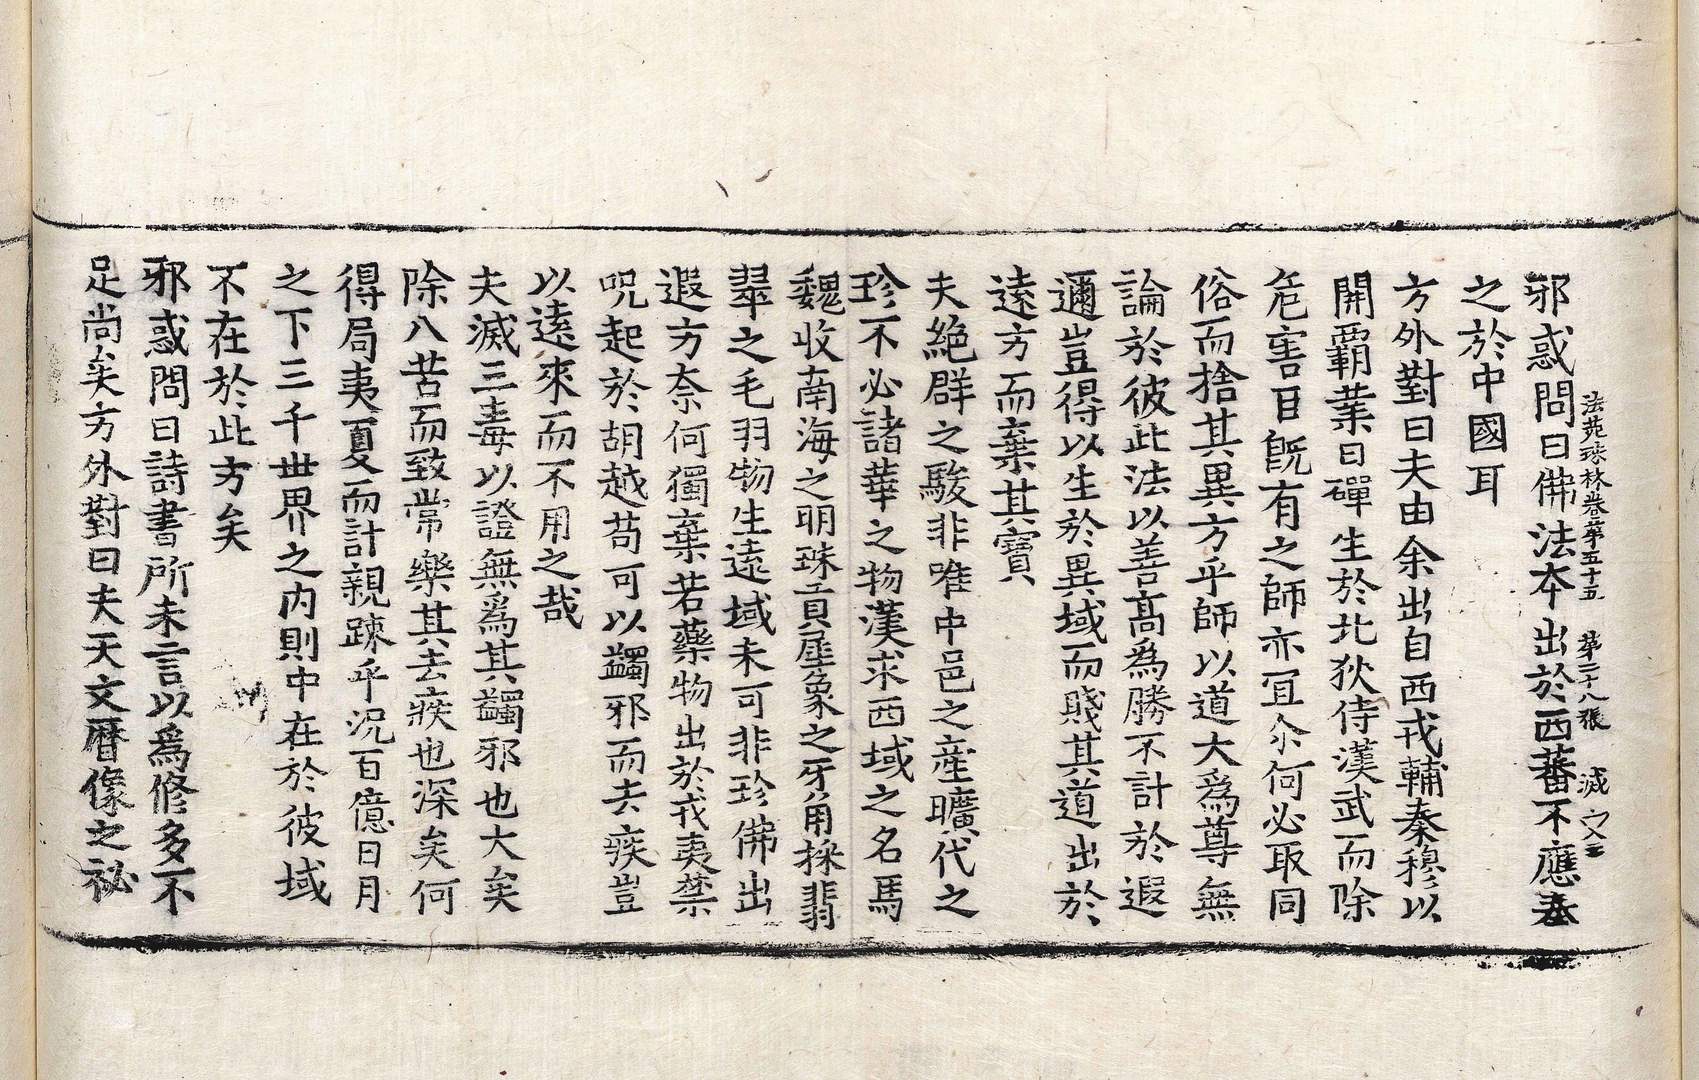 法苑珠林卷第五十五　第二十八張　滅
邪惑問曰佛法本出於西蕃不應奉
之於中國耳
方外對曰夫由余出自西戎輔秦穆以
開霸業日磾生於北狄侍漢武而除
危害目旣有之師亦冝尒何必取同
俗而捨其異方乎師以道大爲尊無
論於彼此法以善髙爲勝不計於遐
邇豈得以生於異域而賤其道出於
遠方而棄其寶
夫絶群之駿非唯中邑之産曠代之
珍不必諸華之物漢求西域之名馬
魏收南海之明珠貢犀象之牙角採翡
翠之毛羽物生遠域未可非珍佛出
遐方奈何獨棄若藥物出於戎夷禁
呪起於胡越苟可以蠲邪而去疾豈
以遠來而不用之哉
夫滅三毒以證無爲其蠲邪也大矣
除八苦而致常樂其去疾也深矣何
得局夷夏而計親踈乎況百億日月
之下三千世界之内則中在於彼域
不在於此方矣
邪惑問曰詩書所未言以爲修多不
足尚矣方外對曰夫天文曆像之祕